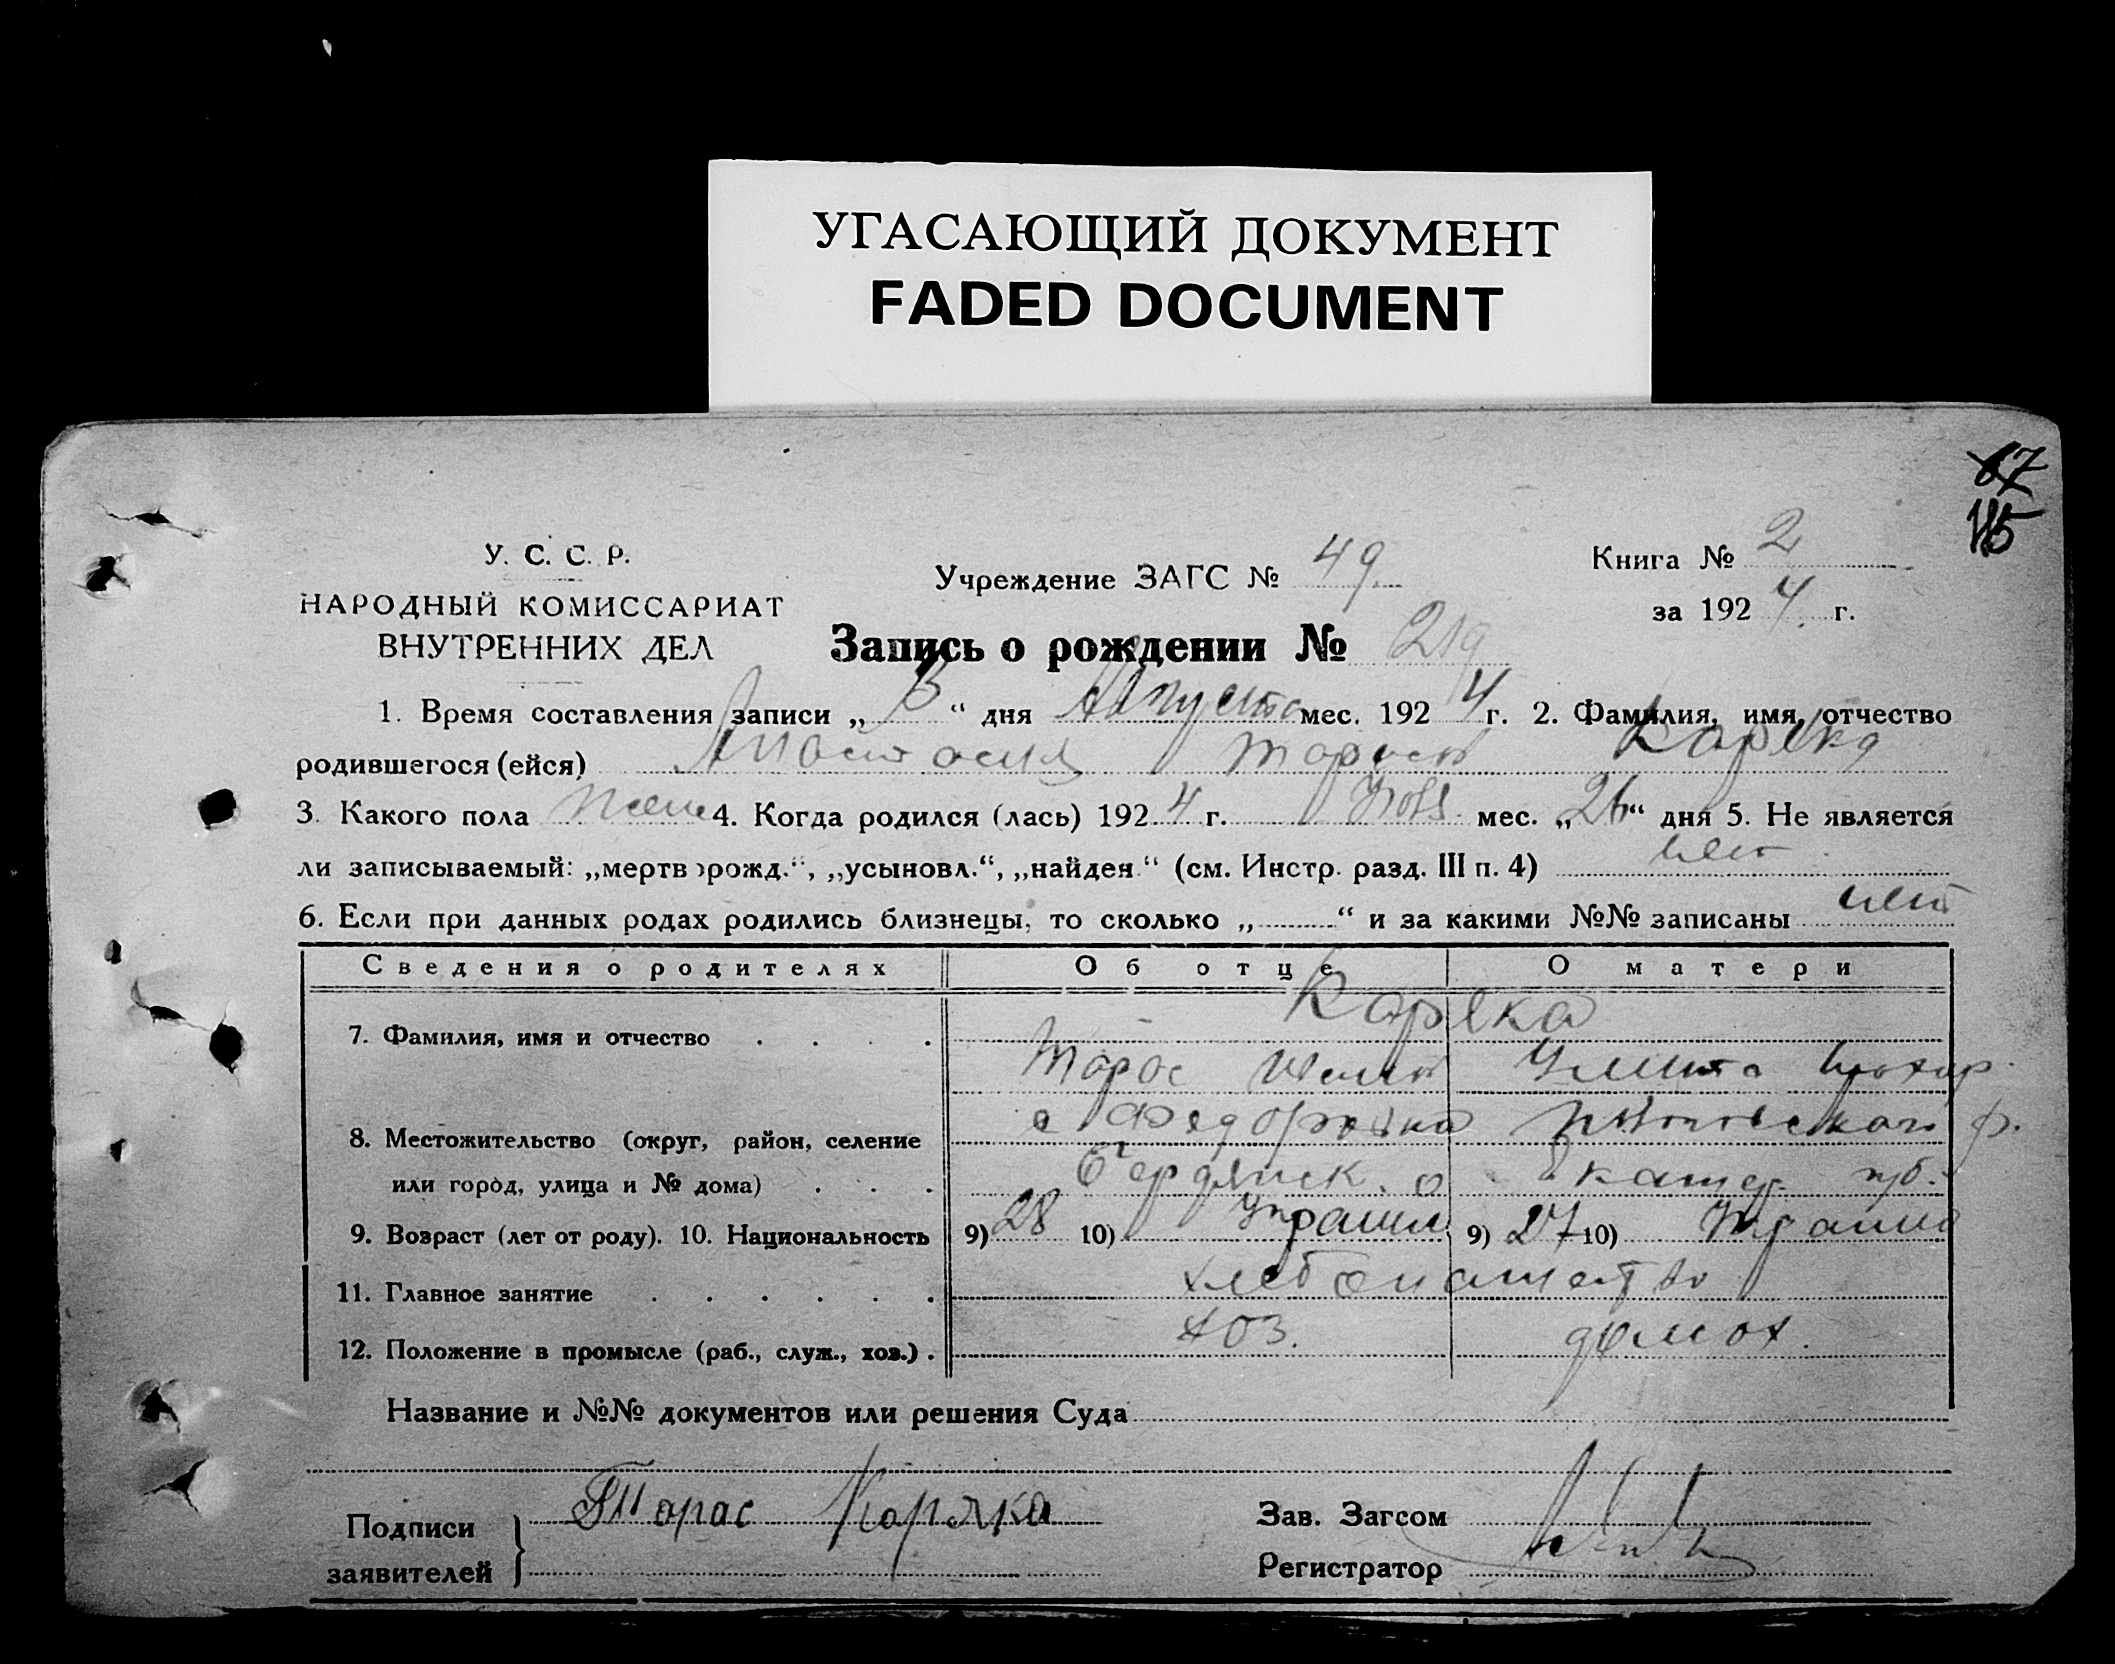 УГАСАЮЩИЙ ДОКУМЕНТ
FADED DOCUMENT
67
115
У. С. С. Р.
НАРОДНЫЙ КОМИССАРИАТ
ВНУТРЕННИХ ДЕЛ
Учреждение ЗАГС № 49
Книга № 2
за 1924 г.
Запись о рождении № 219
1. Время составления записи „ “ дня Августа мес. 1924 г. 2. Фамилия, имя, отчество
родившегося (ейся) Анастасия Тарасов Каряка
3. Какого пола жен 4. Когда родился (лась) 1924 г. мес. „26“ дня 5. Не является
ли записываемый: „мертворожд.“, „усыновл.“, „найден“ (см. Инстр. разд. III п. 4) нет
6. Если при данных родах родились близнецы, то сколько „ “ и за какими №№ записаны нет
Сведения о родителях Об отце О матери
7. Фамилия, имя и отчество Каряка
Тарас Улита
8. Местожительство (округ, район, селение с Федоровка р.
или город, улица и № дома) Бердянск. о Екатер. губ.
9. Возраст (лет от роду). 10. Национальность 9) 28 10) Украин 9) 27 10) Украин
11. Главное занятие хлебопашество
12. Положение в промысле (раб., служ., хоз.) хоз. домох.
Название и №№ документов или решения Суда
Подписи
заявителей
Тарас Каряка
Зав. Загсом
Регистратор